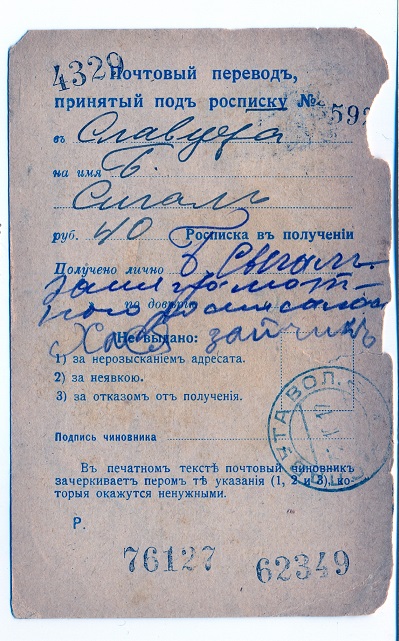 4329
Почтовый переводъ,
принятый подъ росписку №
592
въ Славута
на имя Б.
Сигалъ
руб. 40 Росписка въ полученіи
Получено лично Б. Сигалъ
за неграмот-
ного по довѣр. росписался
Хаія Зайчикъ
Не выдано:
1) за нерозысканіемъ адресата.
2) за неявкою.
3) за отказомъ отъ полученія.
ПОЧТА ВОЛ.
Подпись чиновника
Въ печатномъ текстѣ почтовый чиновникъ
зачеркиваетъ перомъ тѣ указанія (1, 2 и 3), ко-
торыя окажутся ненужными.
Р.
76127 62349